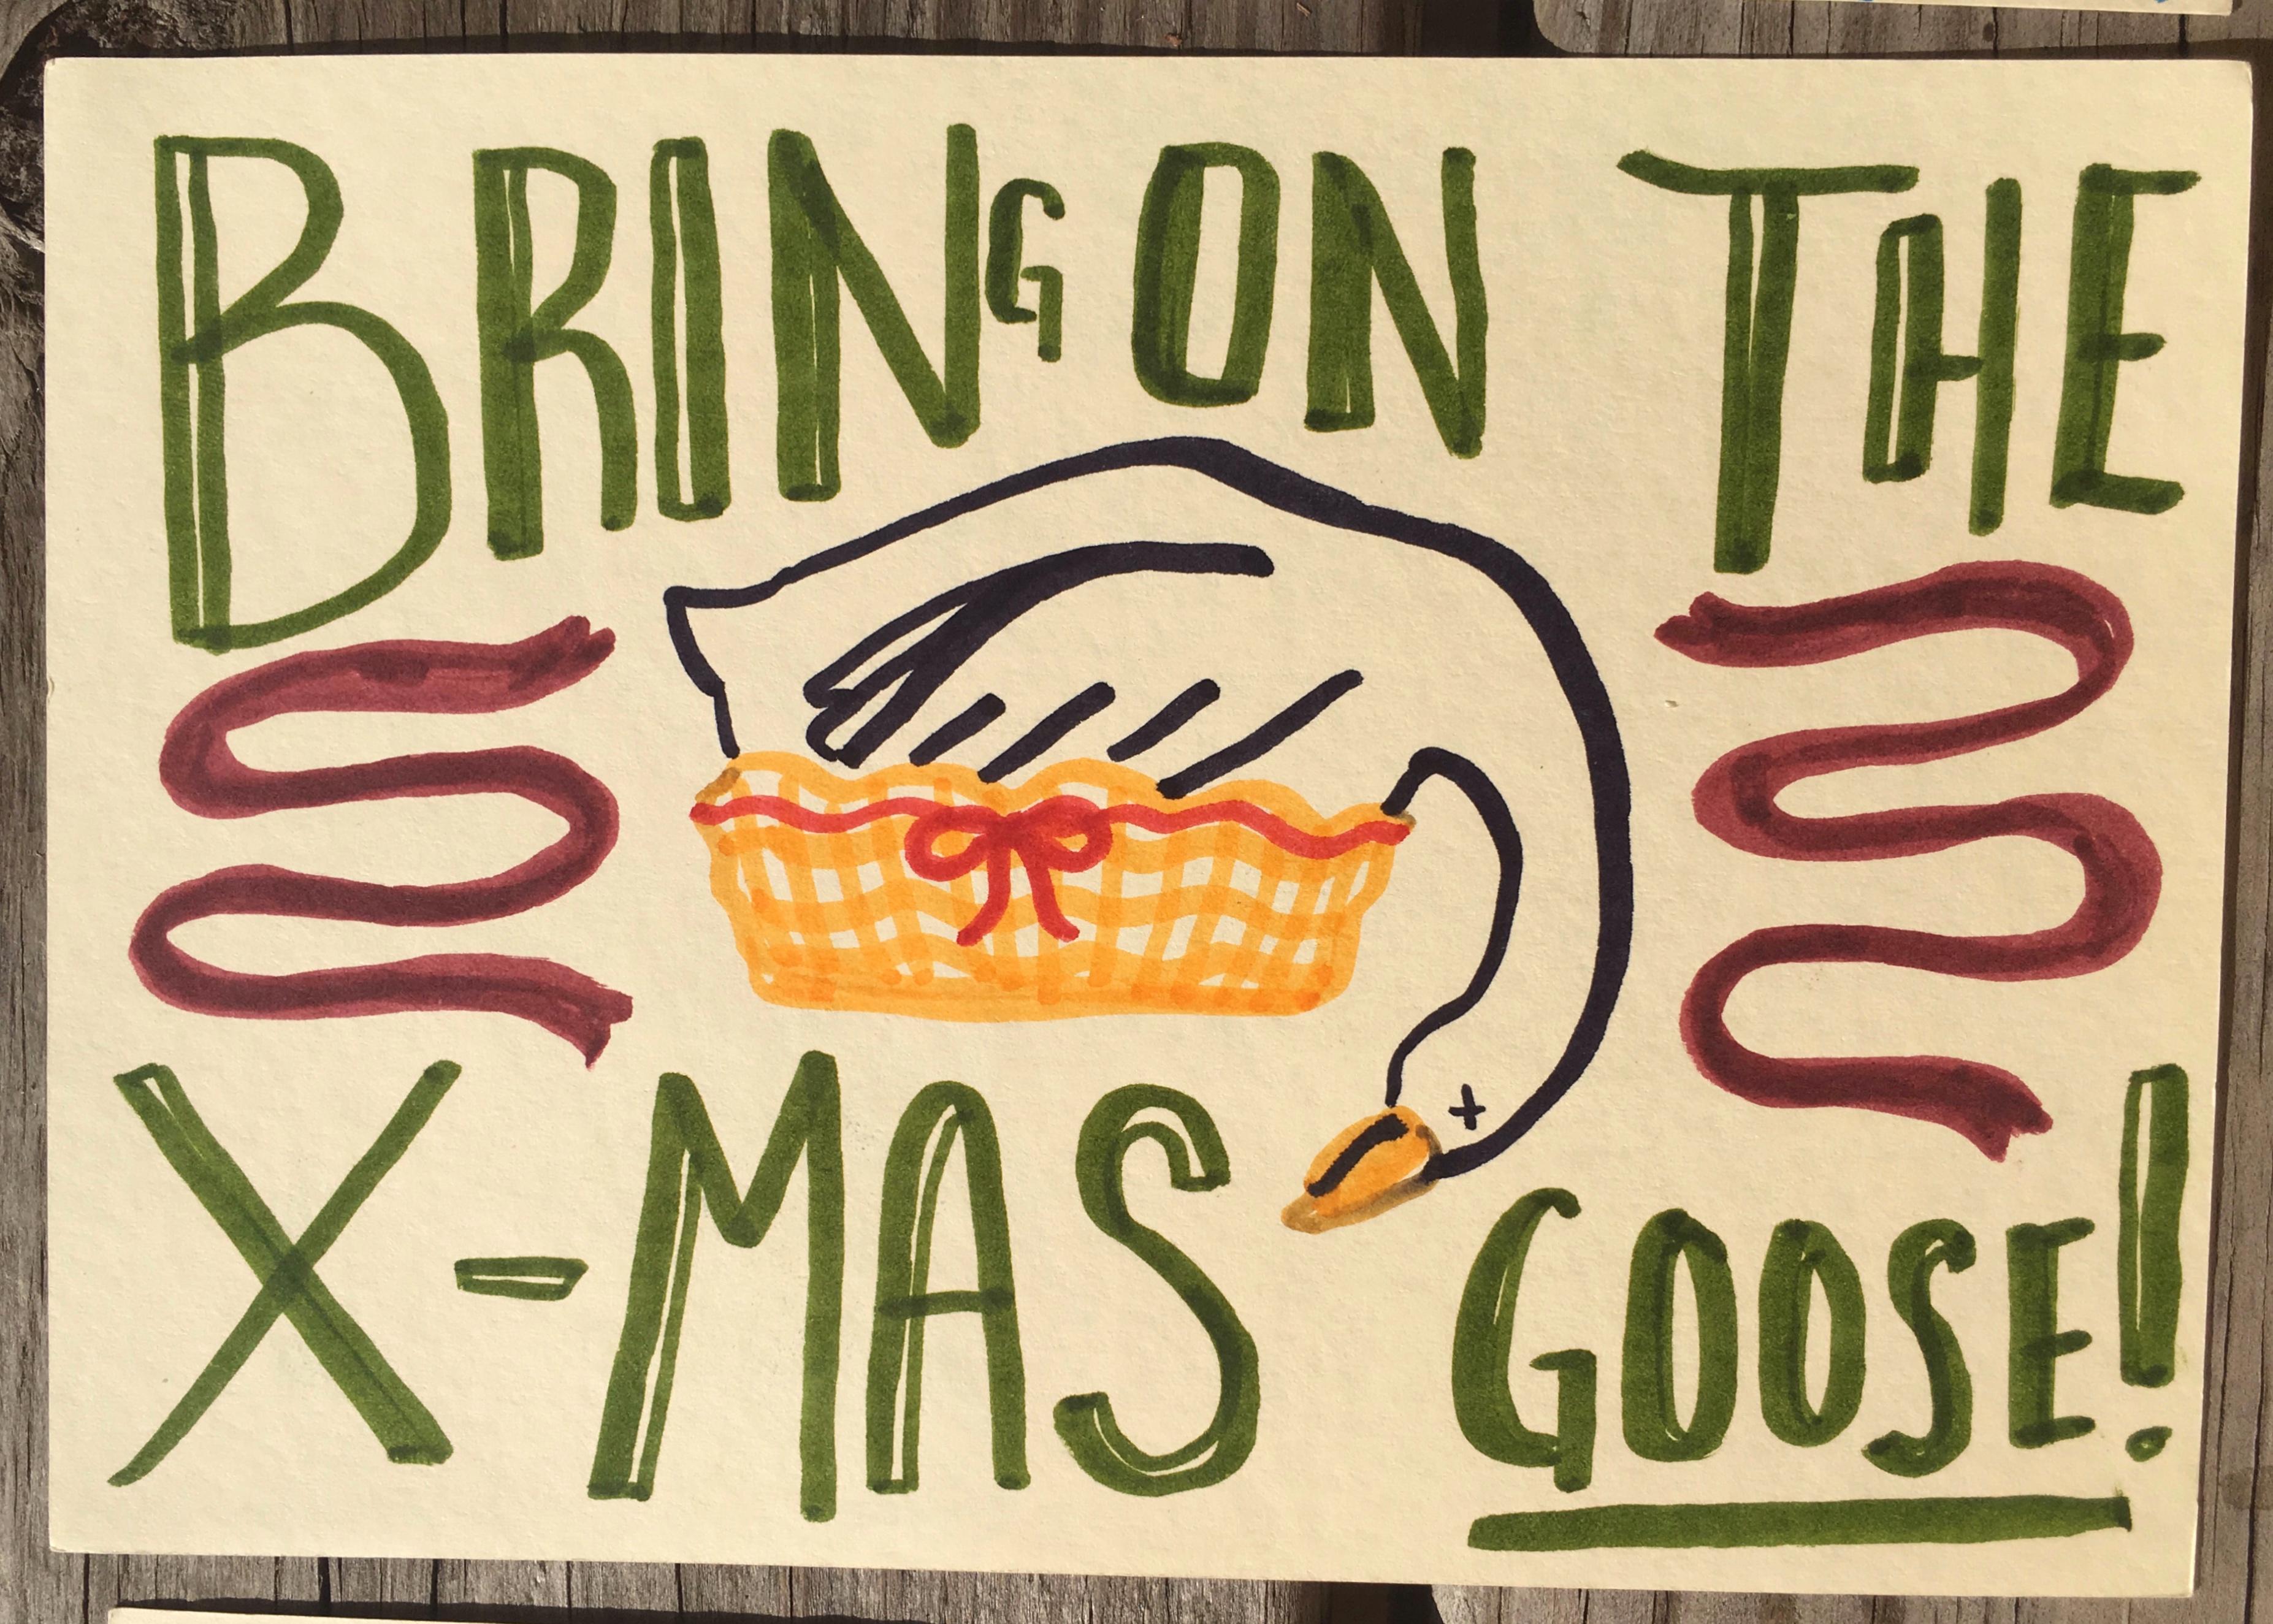 BRING ON THE
X-MAS GOOSE!